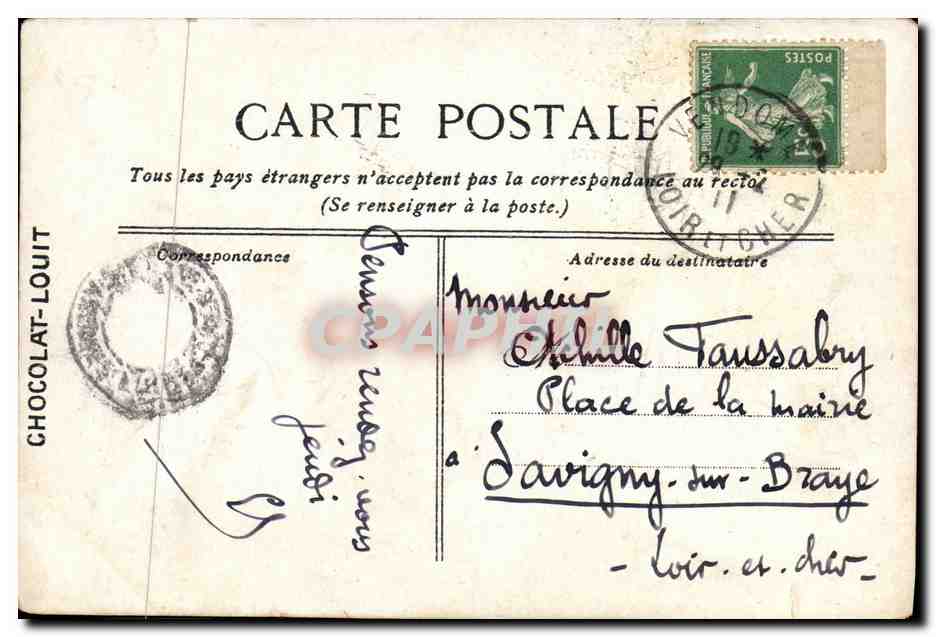 CARTE POSTALE
Tous les pays étrangers n'acceptent pas la correspondance au recto
(Se renseigner à la poste.)
Correspondance
Adresse du destinataire
CHOCOLAT-LOUIT
POSTES
VENDOME
19 *
11
LOIR ET CHER
CPAPHIL
Pensons rendez-vous
jeudi
Monsieur
Achille Taussabry
Place de la mairie
à Savigny-sur-Braye
- Loir-et-cher -